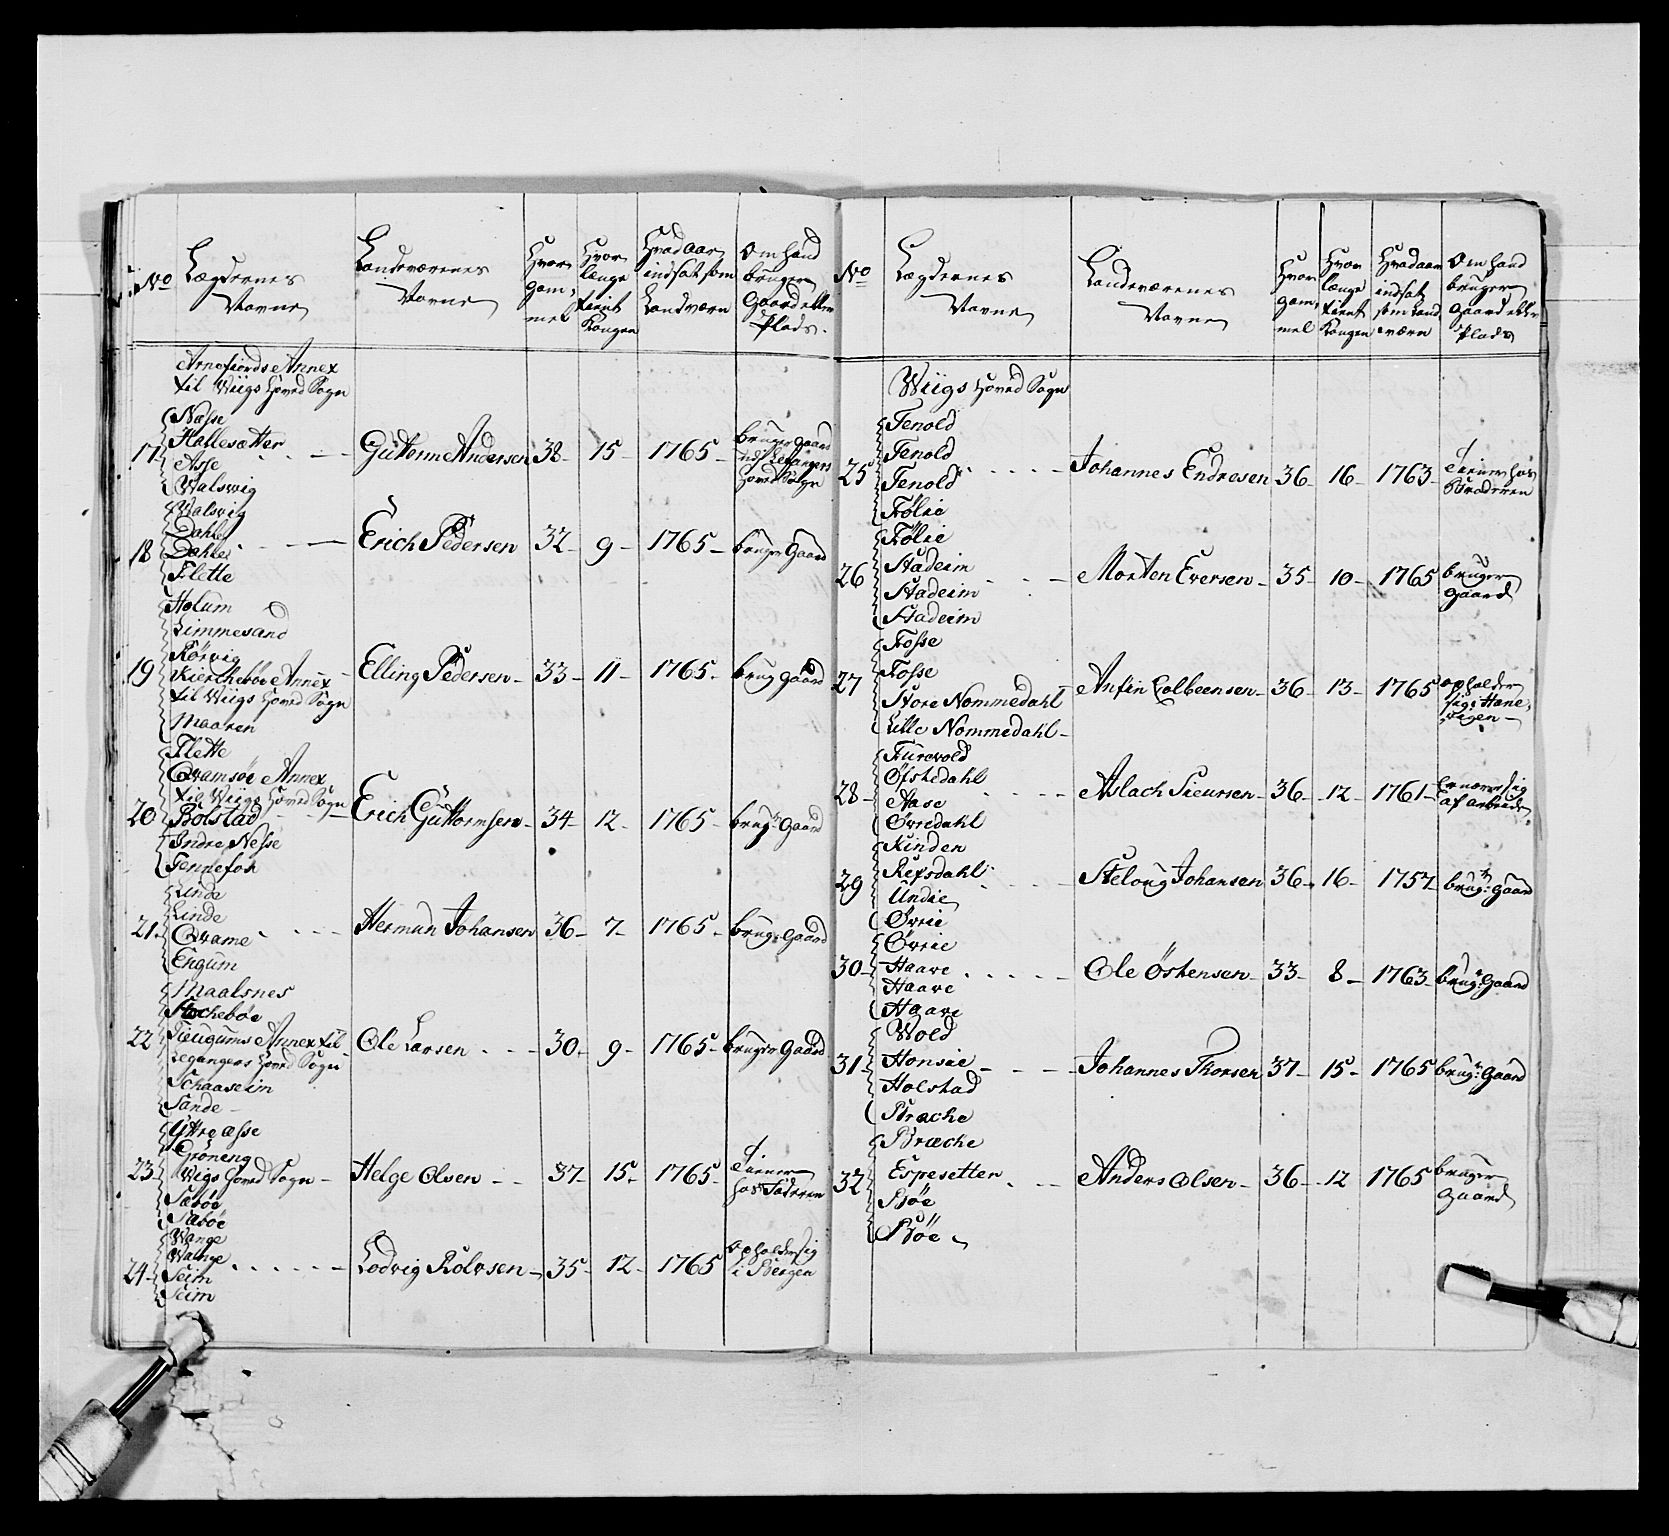 No
Lægdernes
Navne
Landeværenes
Navne
Hvor
gam¸
mel
Hvor
længe
tient
Kongen
Hvad aar
indsat som
Landværn
Om hand
bruger
Gaard eller
Plads.
Arnefiords Annex
til Wiigs Hoved Sogn
Næsse
Hallesætter
17
Asse
Walsvig
Guttorm Andersen
38
15
1765
bruger gaard
Hoved Sogn
Walsvig
Dahle
18
Dahle
Flette
Erich Pedersen
32
9
1765
bruger Gaard
Holum
Limmesand
Rørvig
19
Kierchebøe Annex
til Wiigs Hoved Sogn
Maaren
Elling Pedersen
33
11
1765
brug gaard
Flette
Qvamsøe Annex
til Wiigs Hoved Sogn
20
Bolstad
Indre Nesse
Tennefos
Erich Guttormsen
34
12
1765
brugr Gaard
Linde
Linde
21
Qvame
Engum
Herman Johansen
36
7
1765
brug: Gaard
Maalsnes
Stochebøe
22
Fieugums Annex til
Legangers Hoved Sogn
Schaaseim
Sande
Ole Larsen
30
9
1765
bruger Gaard
Yttre æsse
Grøneng
23
Wigs Hoved Sogn
Sæbøe
Sæbøe
Helge Olsen
37
15
1765
Tiener
hos Faderen
Wange
Wange
24
Seim
Seim
Lodvig Rolvsen
35
12
1765
opholder sig
i Bergen
No
Lægdernes
Navne
Landeværenes
Navne
Hvor
gam¸
mel
Hvor
længe
tient
Kongen
Hvad aar
indsat
som Land
værn
Om hand
bruger
gaard eller
Plads
Wiigs Hoved Sogn
Tenold
Tenold
25
Tenold
Følie
Johannes Endresen
36
16
1763
Tiener hos
Broderen
Følie
Stadeim
26
Stadeim
Stadeim
Morten Eversen
35
10
1765
bruger
gaard
Fosse
Fosse
27
Store Nommedahl
Lille Nommedahl
Anfin Colbeensen
36
13
1765
opholder
Furevold
Øfstedahl
28
Aase
Øvredahl
Aslach Sieursen
36
12
1761
Ernærer sig
af arbeide
Kinden
Refsdahl
29
Undie
Øvrie
Steloug Johansen
36
16
1757
brugr: gaard
Øvrie
30
Haave
Haave
Haave
Ole Østensen
33
8
1763
brugr: Gaard
Wold
31
Honsie
Holstad
Bræche
Johannes Thorsen
37
15
1765
brugr: Gaard
Bræche
32
Espesetter
Bøe
Bøe
Anders Olsen
36
12
1765
bruger
gaard